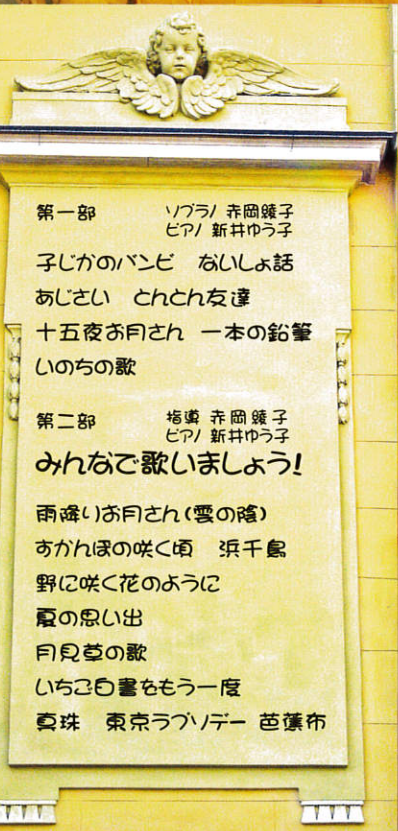 第一部 ソプラノ 赤岡綾子
ピアノ 新井ゆう子
子じかのバンビ ないしょ話
あじさい とんとん友達
十五夜お月さん 一本の鉛筆
いのちの歌
第二部 指導 赤岡綾子
ピアノ 新井ゆう子
みんなで歌いましょう!
雨降りお月さん(雲の陰)
すかんぽの咲く頃 浜千鳥
野に咲く花のように
夏の思い出
月見草の歌
いちご白書をもう一度
真珠 東京ラプソデー 芭蕉布